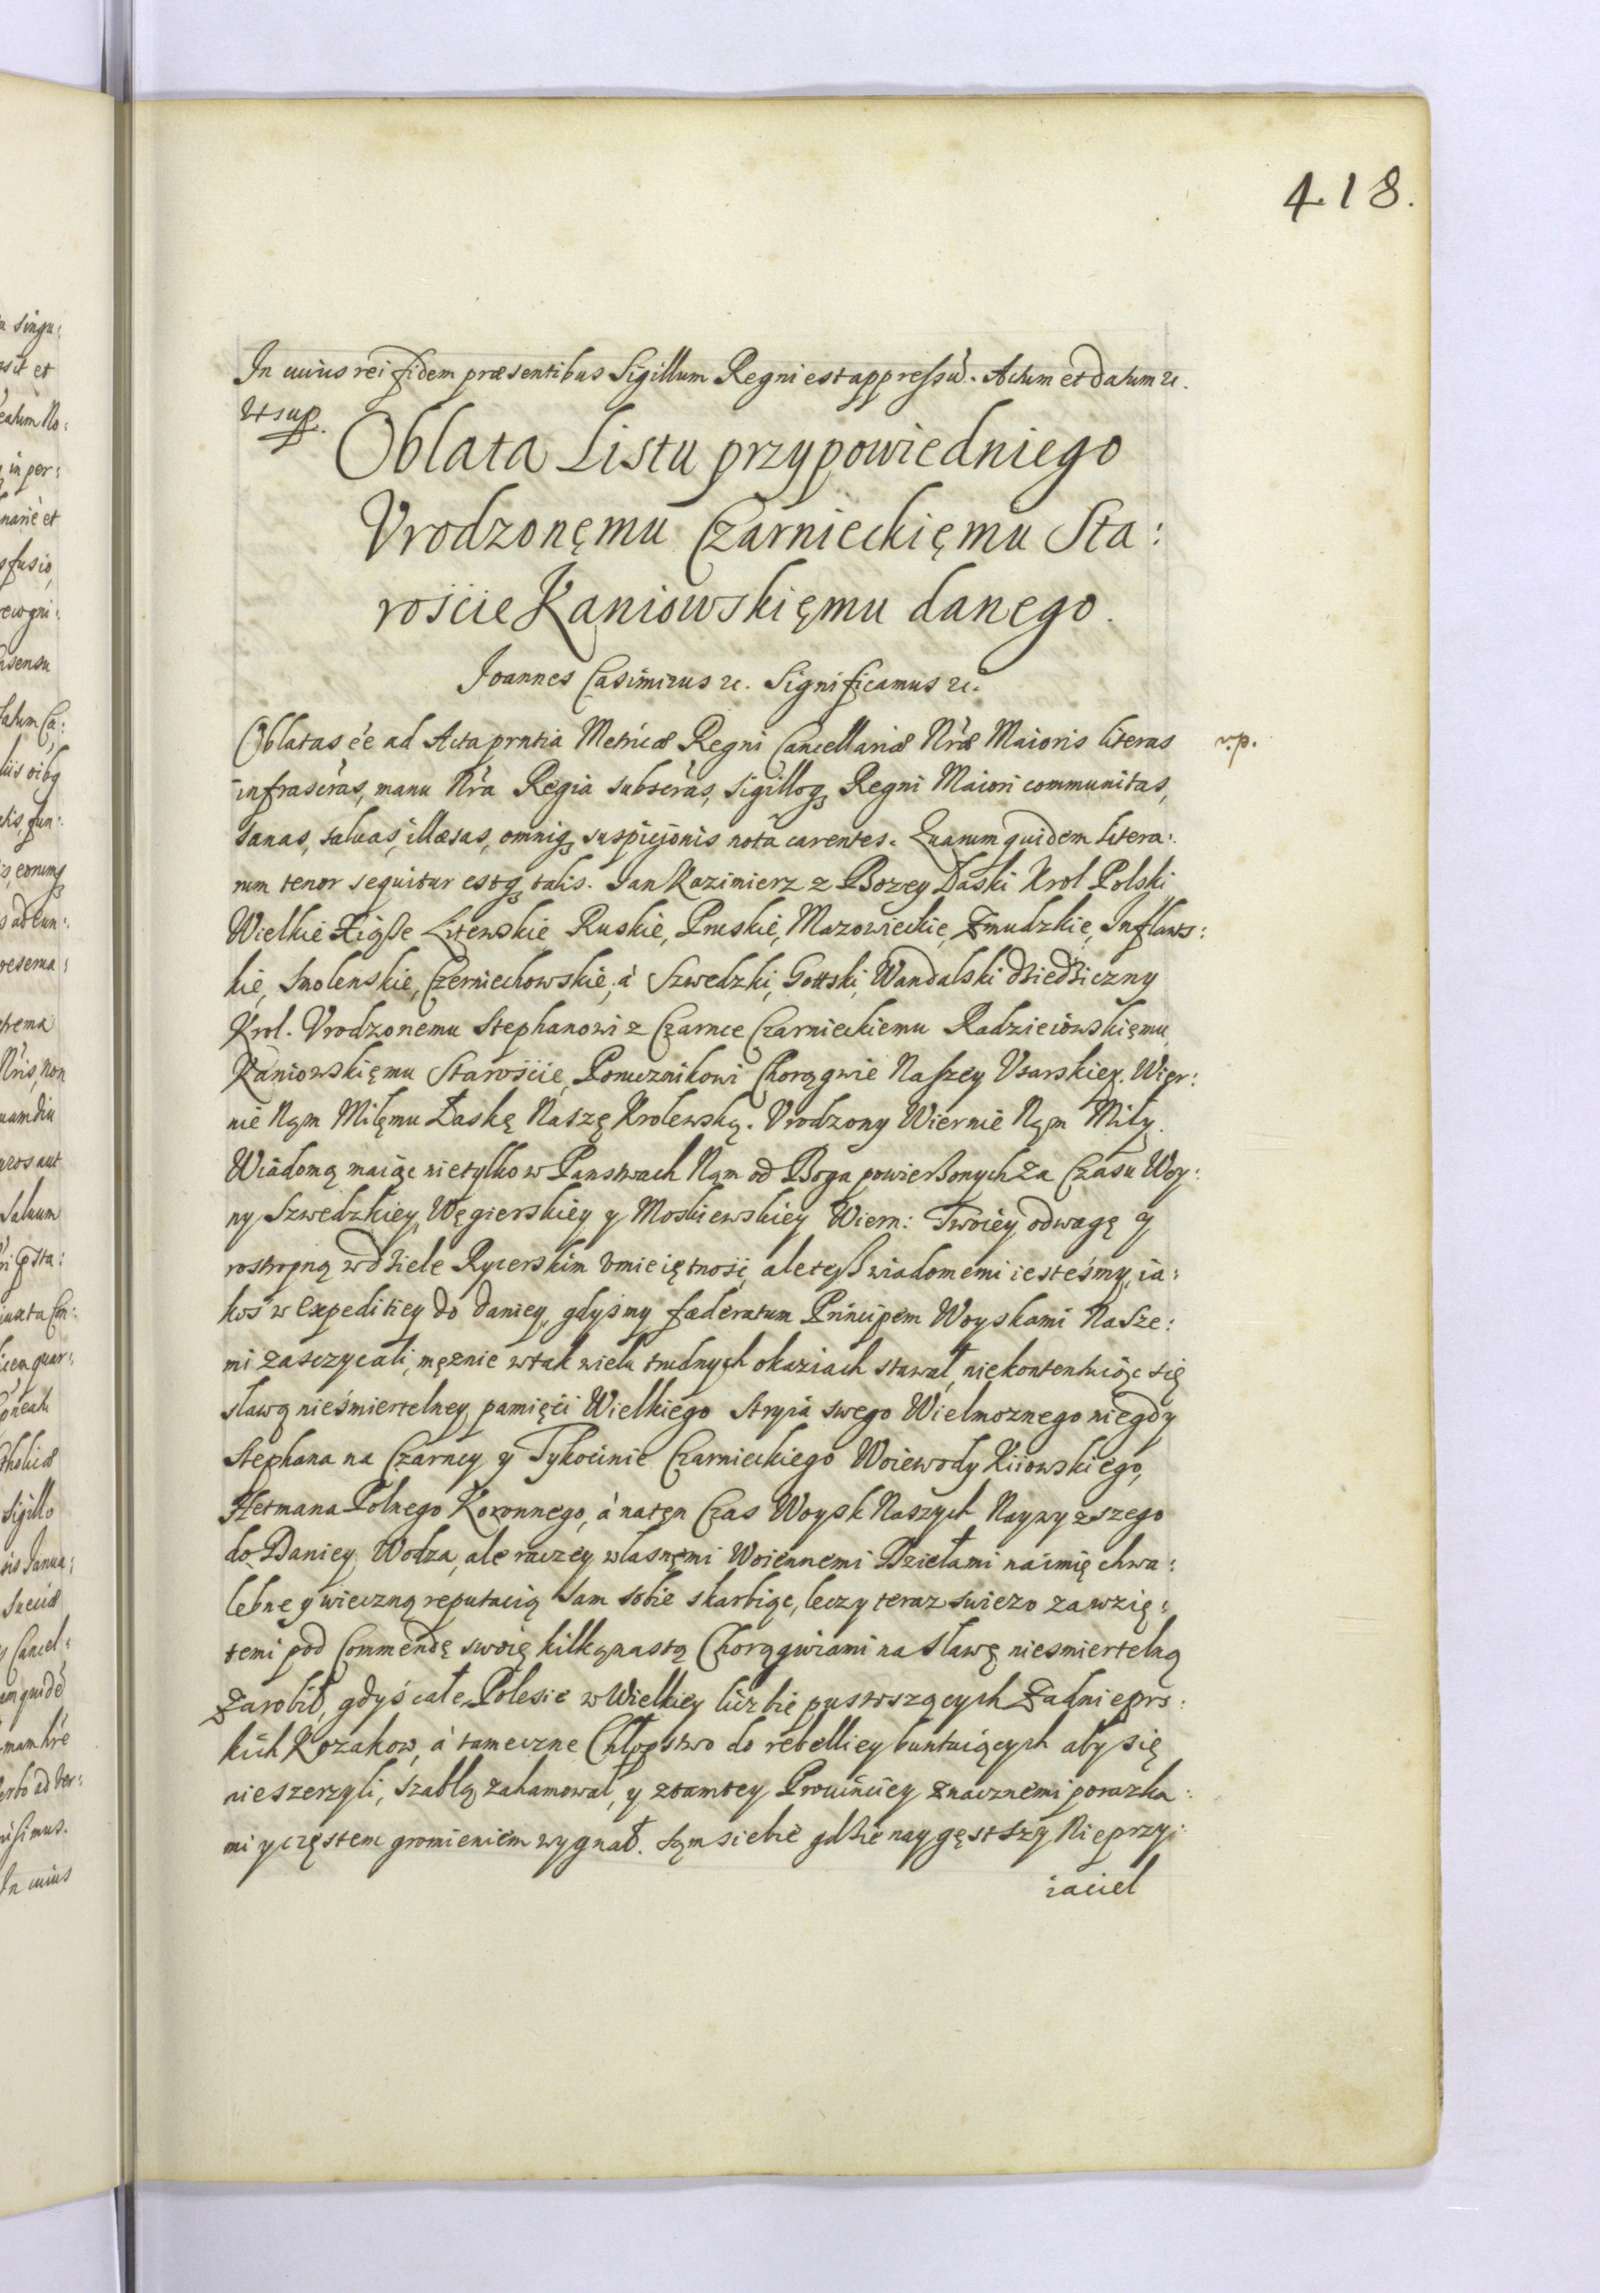 418.
In cuius rei fidem præsentibus Sigillum Regni est appressũ. Actum et datum etc.
vt sup.
Oblata Listu przypowiedniego
Vrodzonęmu Czarnieckięmu Sta:
rościeKaniowskięmu danego.
Joannes Casimirus etc. Significamus etc.
Oblatas ẽe ad Acta prntia Metricæ Regni Cancellariæ Nr̃æ Maioris literas
v.p.
infrascr̃as, manu Nr̃a Regia subscr̃as, sigilloq3 Regni Maiori communitas,
sanas, saluas, illæsas, omniq3 suspicionis nota carentes. Quarum quidem litera:
rum tenor sequitur estq3 talis. Jan Kazimierz z Bozey Łaski Krol Polski
Wielkie Xiąße Litewskie, Ruskie, Pruskie, Mazowieckie, Zmudzkie, Inflans:
kie, Smolenskie, Czerniechowskie, á Szwedzki, Gottski, Wandalski dziedziczny
Krol. Vrodzonemu Stephanowi z Czarnce Czarnieckiemu Radzieiowskięmu,
Kaniowskięmu Staroście, Porucznikowi Chorągwie Naszey Vsarskiey. Wier:
nie Nąm Miłęmu Łaskę Naszę Krolewską. Vrodzony Wiernie Nąm Miły.
Wiádomą maiąc nietylko w Panstwach Nąm od Boga powierßonych za Czasu Woy:
ny Szwedzkiey, Węgierskiey y Moskiewskiey Wiern: Twoiey odwagę y
rostropną w dziele Rycerskim vmieiętność, ale teyß wiadomemi iesteśmy, ia:
koś w Expeditiey do Daniey, gdyśmy fæderatum Principem Woyskami Nasze:
mi zasczycali, męznie w tak wielu trudnych okaziach stawał, niekontentuiąc się
sławą nieśmiertelney pamięći Wielkiego Stryia swego Wielmoznego niegdy
Stephana na Czarncy y Tykocinie Czarnieckiego Woiewody Kiiowskiego,
Hetmana Polnego Koronnego, á natęn Czas Woysk Naszych Naywyzszego
do Daniey Wodza, ale raczey własnęmi Woiennemi Dziełami náimię chwa:
lebne y wieczną reputacią sam sobie skarbiąc, leczy teraz swiezo zawzię:
temi pod Commendę swoię kilkąnastą Chorągwiami na sławę niesmiertelną
zarobił, gdyś całe Polesie w Wielkiey liczbie pustoszących Zadnieprs:
kich Kozakow, á tameczne Chłopstwo do rebelliey buntuiących aby się
nieszerzyli, szablą zahamował, y ztamtey Prouinciey znacznemi porazka:
mi y częstem gromieniem wygnał. Sąm siebie gdzie naygęstszy Nieprzy:
iaciel